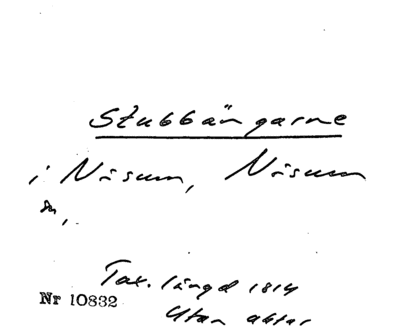 Stubbängarne
i Näsum, Näsum
sn,
Tax. längd 1814
Nr 10832
Utan akter